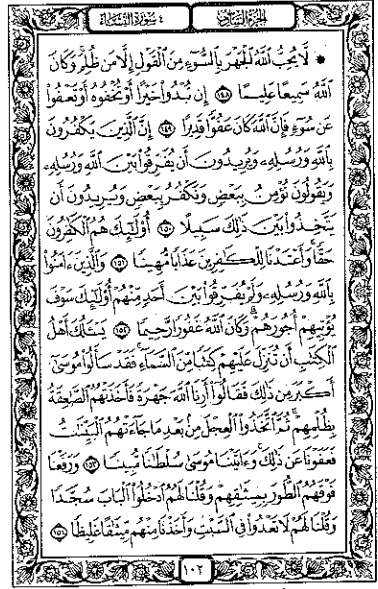 الجزء السادس ٤ سورة النساء
۞ لَّا يُحِبُّ ٱللَّهُ ٱلْجَهْرَ بِٱلسُّوٓءِ مِنَ ٱلْقَوْلِ إِلَّا مَن ظُلِمَ ۚ وَكَانَ
ٱللَّهُ سَمِيعًا عَلِيمًا ١٤٨ إِن تُبْدُوا۟ خَيْرًا أَوْ تُخْفُوهُ أَوْ تَعْفُوا۟
عَن سُوٓءٍ فَإِنَّ ٱللَّهَ كَانَ عَفُوًّا قَدِيرًا ١٤٩ إِنَّ ٱلَّذِينَ يَكْفُرُونَ
بِٱللَّهِ وَرُسُلِهِۦ وَيُرِيدُونَ أَن يُفَرِّقُوا۟ بَيْنَ ٱللَّهِ وَرُسُلِهِۦ
وَيَقُولُونَ نُؤْمِنُ بِبَعْضٍ وَنَكْفُرُ بِبَعْضٍ وَيُرِيدُونَ أَن
يَتَّخِذُوا۟ بَيْنَ ذَٰلِكَ سَبِيلًا ١٥٠ أُو۟لَٰٓئِكَ هُمُ ٱلْكَٰفِرُونَ
حَقًّا ۚ وَأَعْتَدْنَا لِلْكَٰفِرِينَ عَذَابًا مُّهِينًا ١٥١ وَٱلَّذِينَ ءَامَنُوا۟
بِٱللَّهِ وَرُسُلِهِۦ وَلَمْ يُفَرِّقُوا۟ بَيْنَ أَحَدٍ مِّنْهُمْ أُو۟لَٰٓئِكَ سَوْفَ
يُؤْتِيهِمْ أُجُورَهُمْ ۗ وَكَانَ ٱللَّهُ غَفُورًا رَّحِيمًا ١٥٢ يَسْـَٔلُكَ أَهْلُ
ٱلْكِتَٰبِ أَن تُنَزِّلَ عَلَيْهِمْ كِتَٰبًا مِّنَ ٱلسَّمَآءِ ۚ فَقَدْ سَأَلُوا۟ مُوسَىٰٓ
أَكْبَرَ مِن ذَٰلِكَ فَقَالُوٓا۟ أَرِنَا ٱللَّهَ جَهْرَةً فَأَخَذَتْهُمُ ٱلصَّٰعِقَةُ
بِظُلْمِهِمْ ۚ ثُمَّ ٱتَّخَذُوا۟ ٱلْعِجْلَ مِنۢ بَعْدِ مَا جَآءَتْهُمُ ٱلْبَيِّنَٰتُ
فَعَفَوْنَا عَن ذَٰلِكَ ۚ وَءَاتَيْنَا مُوسَىٰ سُلْطَٰنًا مُّبِينًا ١٥٣ وَرَفَعْنَا
فَوْقَهُمُ ٱلطُّورَ بِمِيثَٰقِهِمْ وَقُلْنَا لَهُمُ ٱدْخُلُوا۟ ٱلْبَابَ سُجَّدًا
وَقُلْنَا لَهُمْ لَا تَعْدُوا۟ فِى ٱلسَّبْتِ وَأَخَذْنَا مِنْهُم مِّيثَٰقًا غَلِيظًا ١٥٤
١٠٢